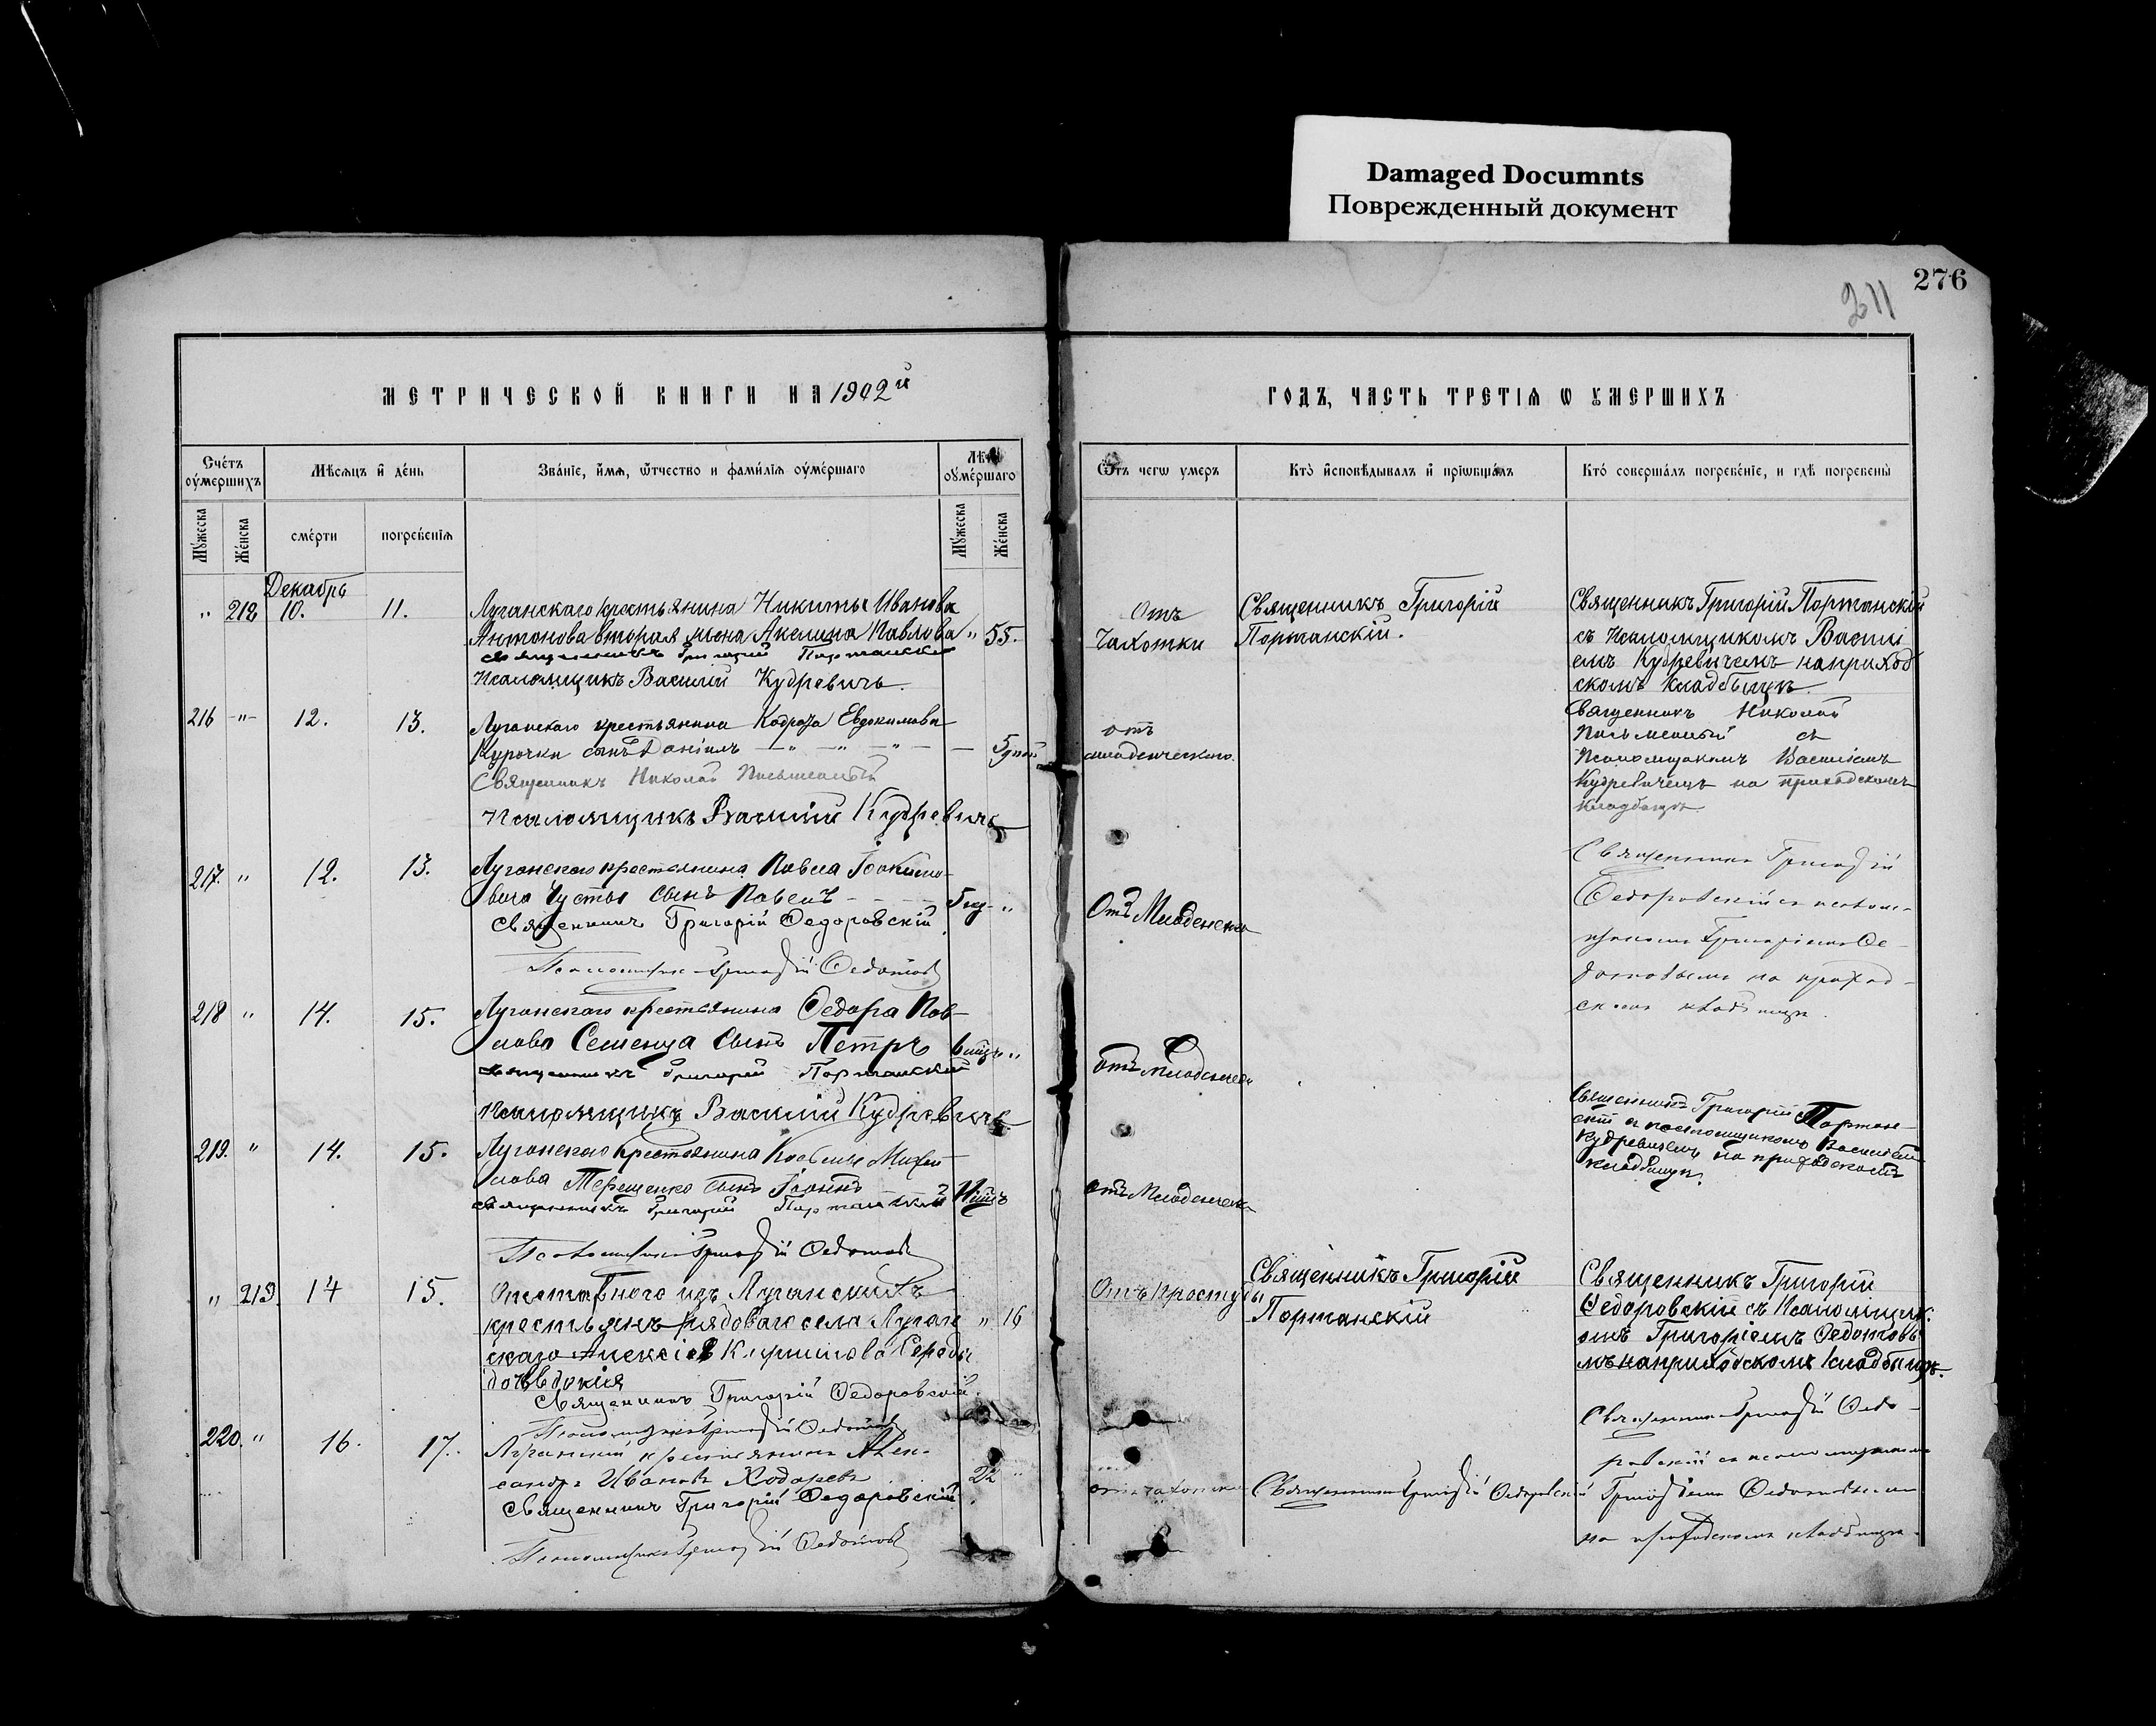 Damaged Documnts
Поврежденный документ
276
211
МЕТРИЧЕСКОЙ КНИГИ НА 1902й
ГОДЪ, ЧАСТЬ ТРЕТІЯ Ѡ ОУМЕРШИХЪ
Счетъ оумершихъ
Мѣсяцъ и день
Званіе, имя, ѿчество и фамилія оумершаго
Лѣта оумершаго
Ѿтъ чегѡ умеръ
Кто исповѣдывалъ и пріѡбщалъ
Кто совершалъ погребеніе, и гдѣ погребены
Мужеска
Женска
смерти
погребенія
Мужеска
Женска
Декабрь
" 212 10. 11. Луганскаго крестьянина Никиты Иванова
Антонова вторая жена Акелина Павлова " 55.
Священникъ Григорій Портанскій
Псаломщикъ Василій Кудревичъ.
Отъ
чахотки
Священникъ Григорій
Портанскій.
Священникъ Григорій Портанскій
съ Псаломщикомъ Васили
емъ Кудревичемъ на приход
скомъ кладбищѣ.
216 -"- 12. 13. Луганскаго крестьянина Евдокимова
Курочки сынъ Даніилъ — " — " — " — — 5 дней
Священникъ Николай
Псаломщикъ Василій Кудревичъ
отъ
младенческаго.
Священникъ Николай
съ
Псаломщикомъ Василіемъ
Кудревичемъ на приходскомъ
кладбищѣ
217. " 12. 13. Луганскаго крестьянина Павла Іоакимо-
вича сынъ Павелъ - - - "
Священникъ Григорій Федоровскій.
Псаломщикъ Григорій Федотовъ
Отъ Младенческ
Священникъ Григорій
Федоровскій съ псалом-
щикомъ Григоріемъ Фе-
дотовымъ на приход-
скомъ кладбищѣ.
218 " 14. 15. Луганскаго крестьянина Федора Пав-
лова Семенца сынъ Петръ "
Священникъ Григорій Портанскій
Псаломщикъ Василій Кудревичъ.
отъ младенческ
219. " 14. 15. Луганскаго крестьянина Михай-
лова Терещенко сынъ Іоаннъ
Священникъ Григорій Портанскій
Псаломщикъ Григорій Федотовъ
отъ Младенческ
Священникъ Григорій Портан-
скій съ псаломщикомъ Василіемъ
Кудревичемъ на приходскомъ
кладбищѣ.
" 219. 14 15. Отставного изъ Луганскихъ
крестьянъ рядоваго села Луган " 16
скаго Алексія Кирилова Середы
дочь Евдокія
Священникъ Григорій Федоровскій.
Псаломщикъ Григорій Федотовъ
Отъ простуды
Священникъ Григорій
Портанскій
Священникъ Григорій
Федоровскій съ Псаломщик.
омъ Григоріемъ Федотовы
мъ на приходскомъ кладбищѣ.
220. " 16. 17. Луганскій крестьянинъ Алек-
сандръ Ивановъ Ходаревъ 22 "
Священникъ Григорій Федоровскій.
Псаломщикъ Григорій Федотовъ
отъ чахотки
Священникъ Григорій Федоровскій
Священникъ Григорій Федо-
ровскій съ псаломщикомъ
Григоріемъ Федотовымъ
на приходскомъ кладбищѣ.